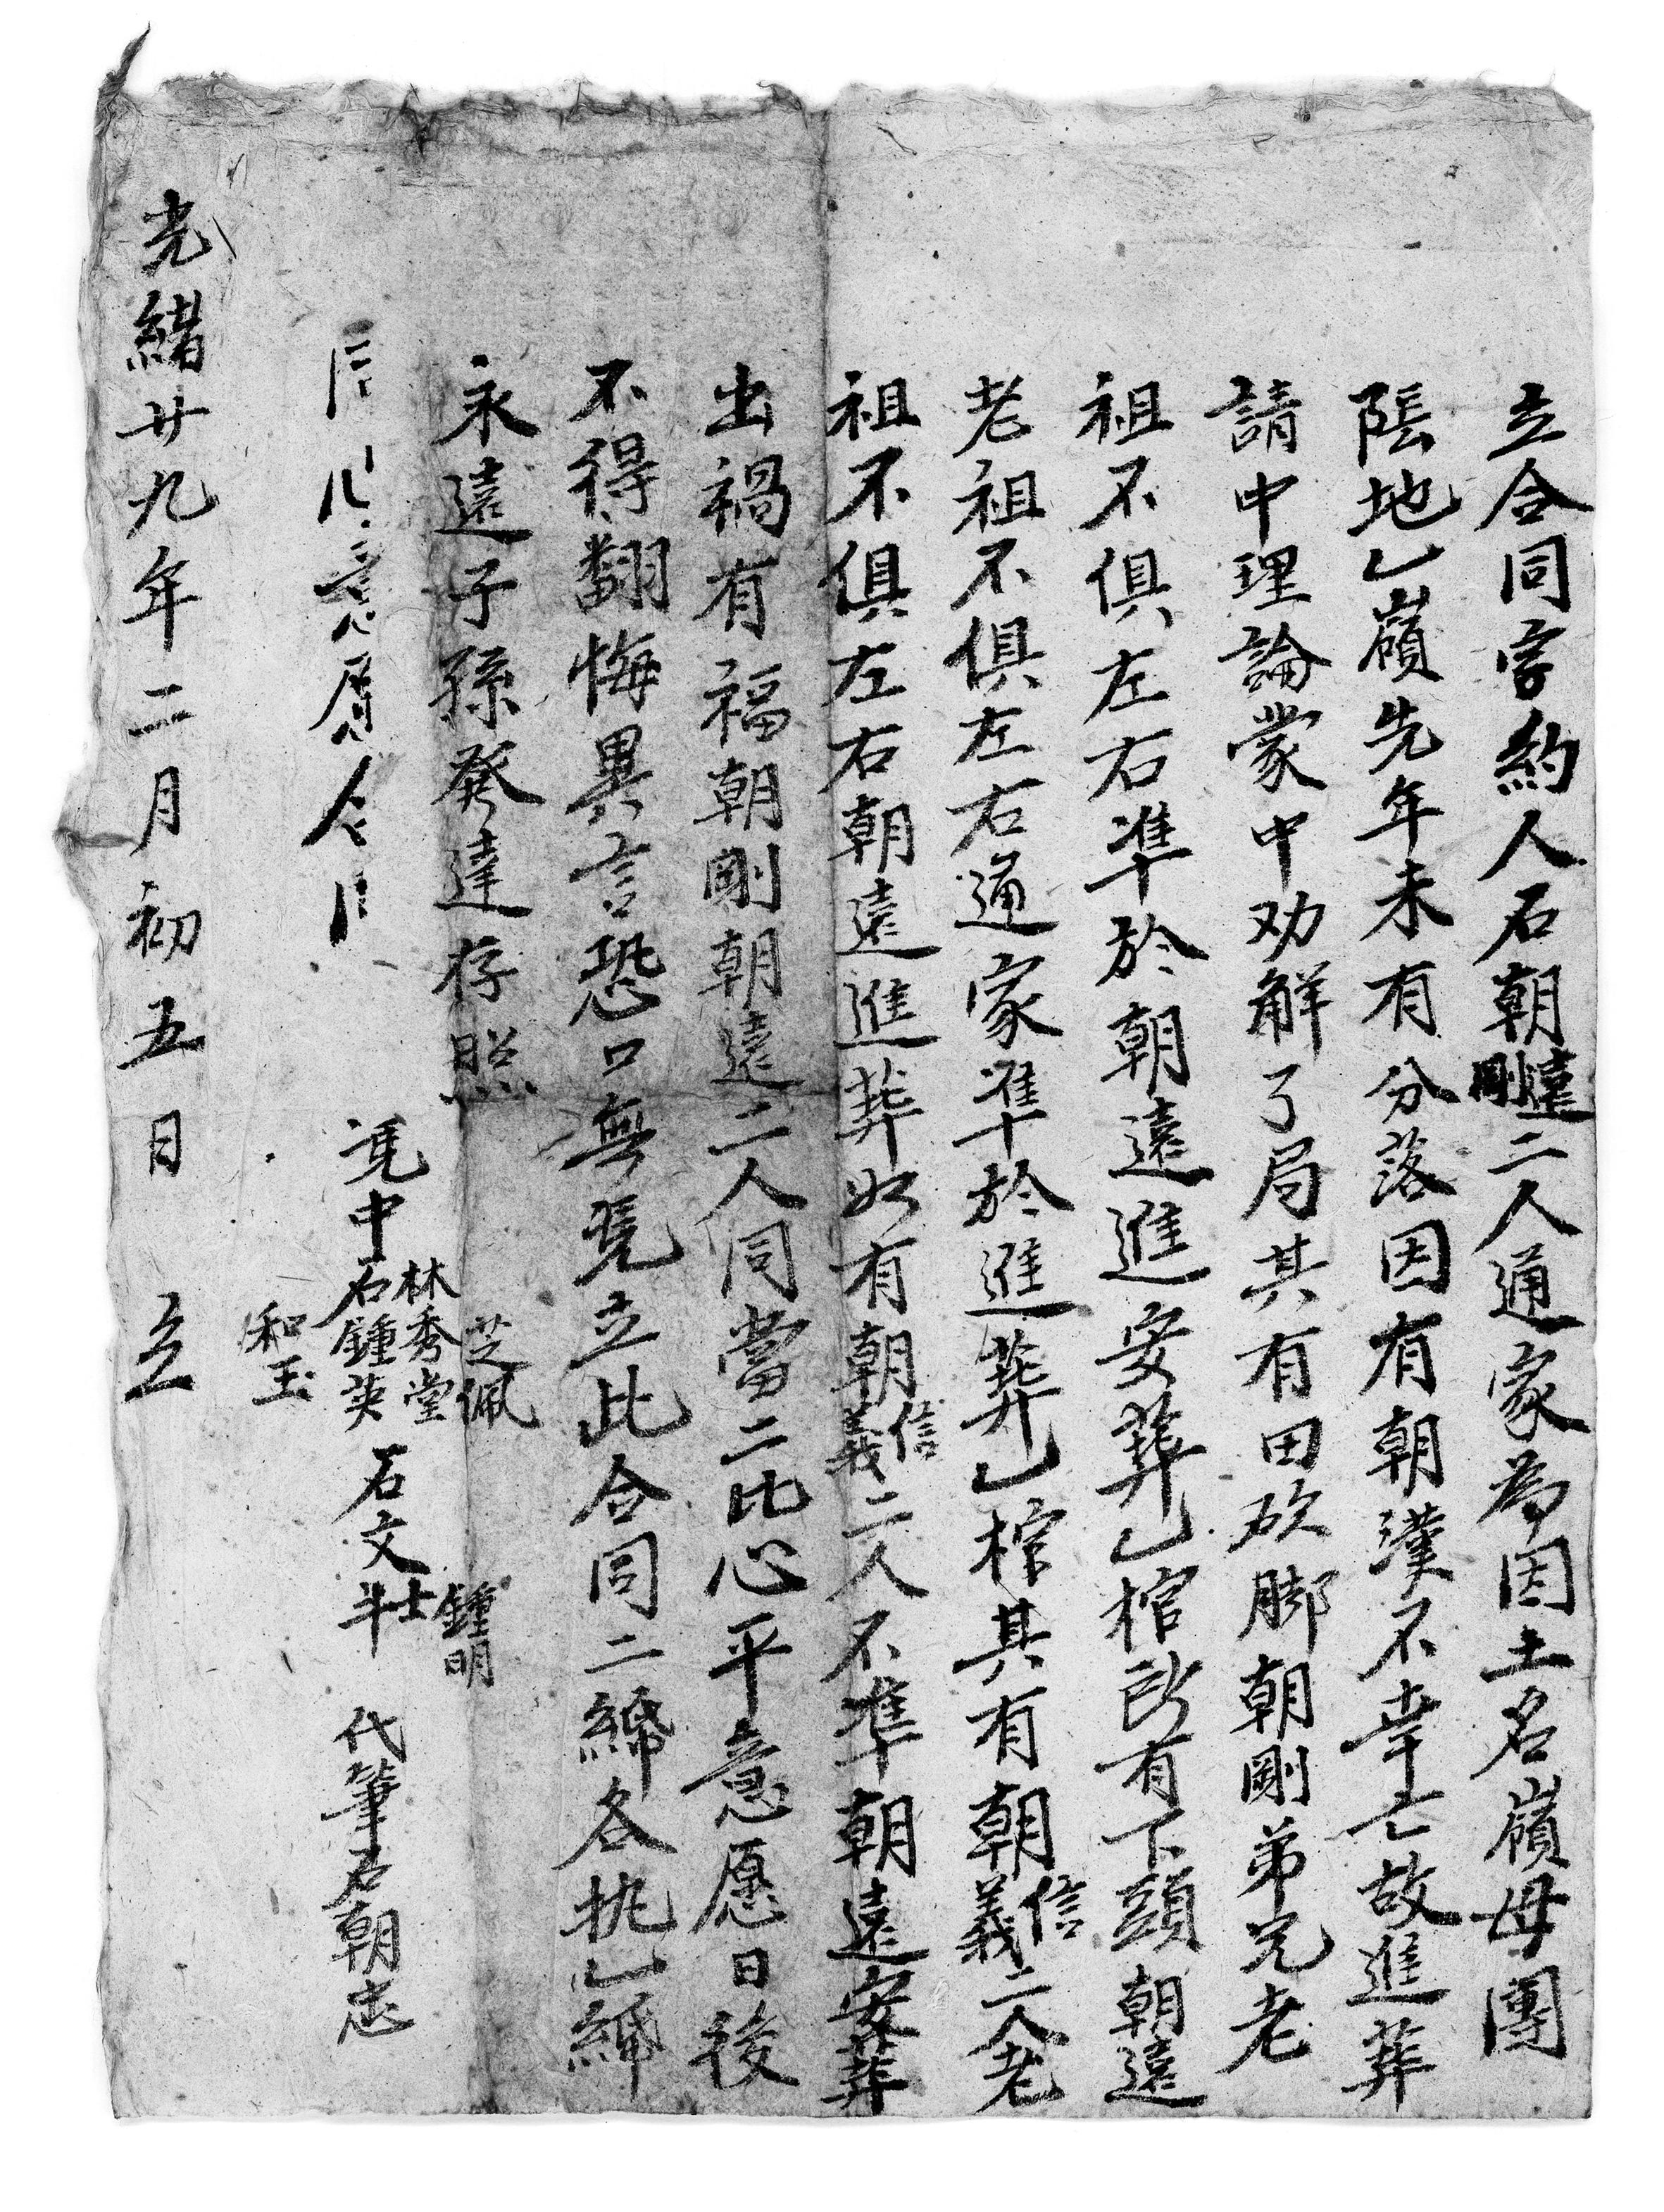 立合同字約人石朝遠剛二人通家為因土名嶺母團
陰地乙嶺先年未有分落因有朝漢不幸亡故進葬
請中理論蒙中劝解了局其有田砍脚朝剛弟兄老
祖不俱左右準於朝遠進安葬乙棺所有下頭朝遠
老祖不俱左右通家準於進葬乙棺其有朝信義二人老
祖不俱左右朝遠進葬如有朝信義二人不準朝遠安葬
出禍有福朝剛朝遠二人同當二比心平意愿日後
不得翻悔異言恐口無凴立此合同二紙各执乙紙
永遠子孫發達存照
芝佩
鍾明
林秀堂
凴中石鍾英 石文士斗 代筆石朝忠
和玉
光緒廿九年二月初五日 立